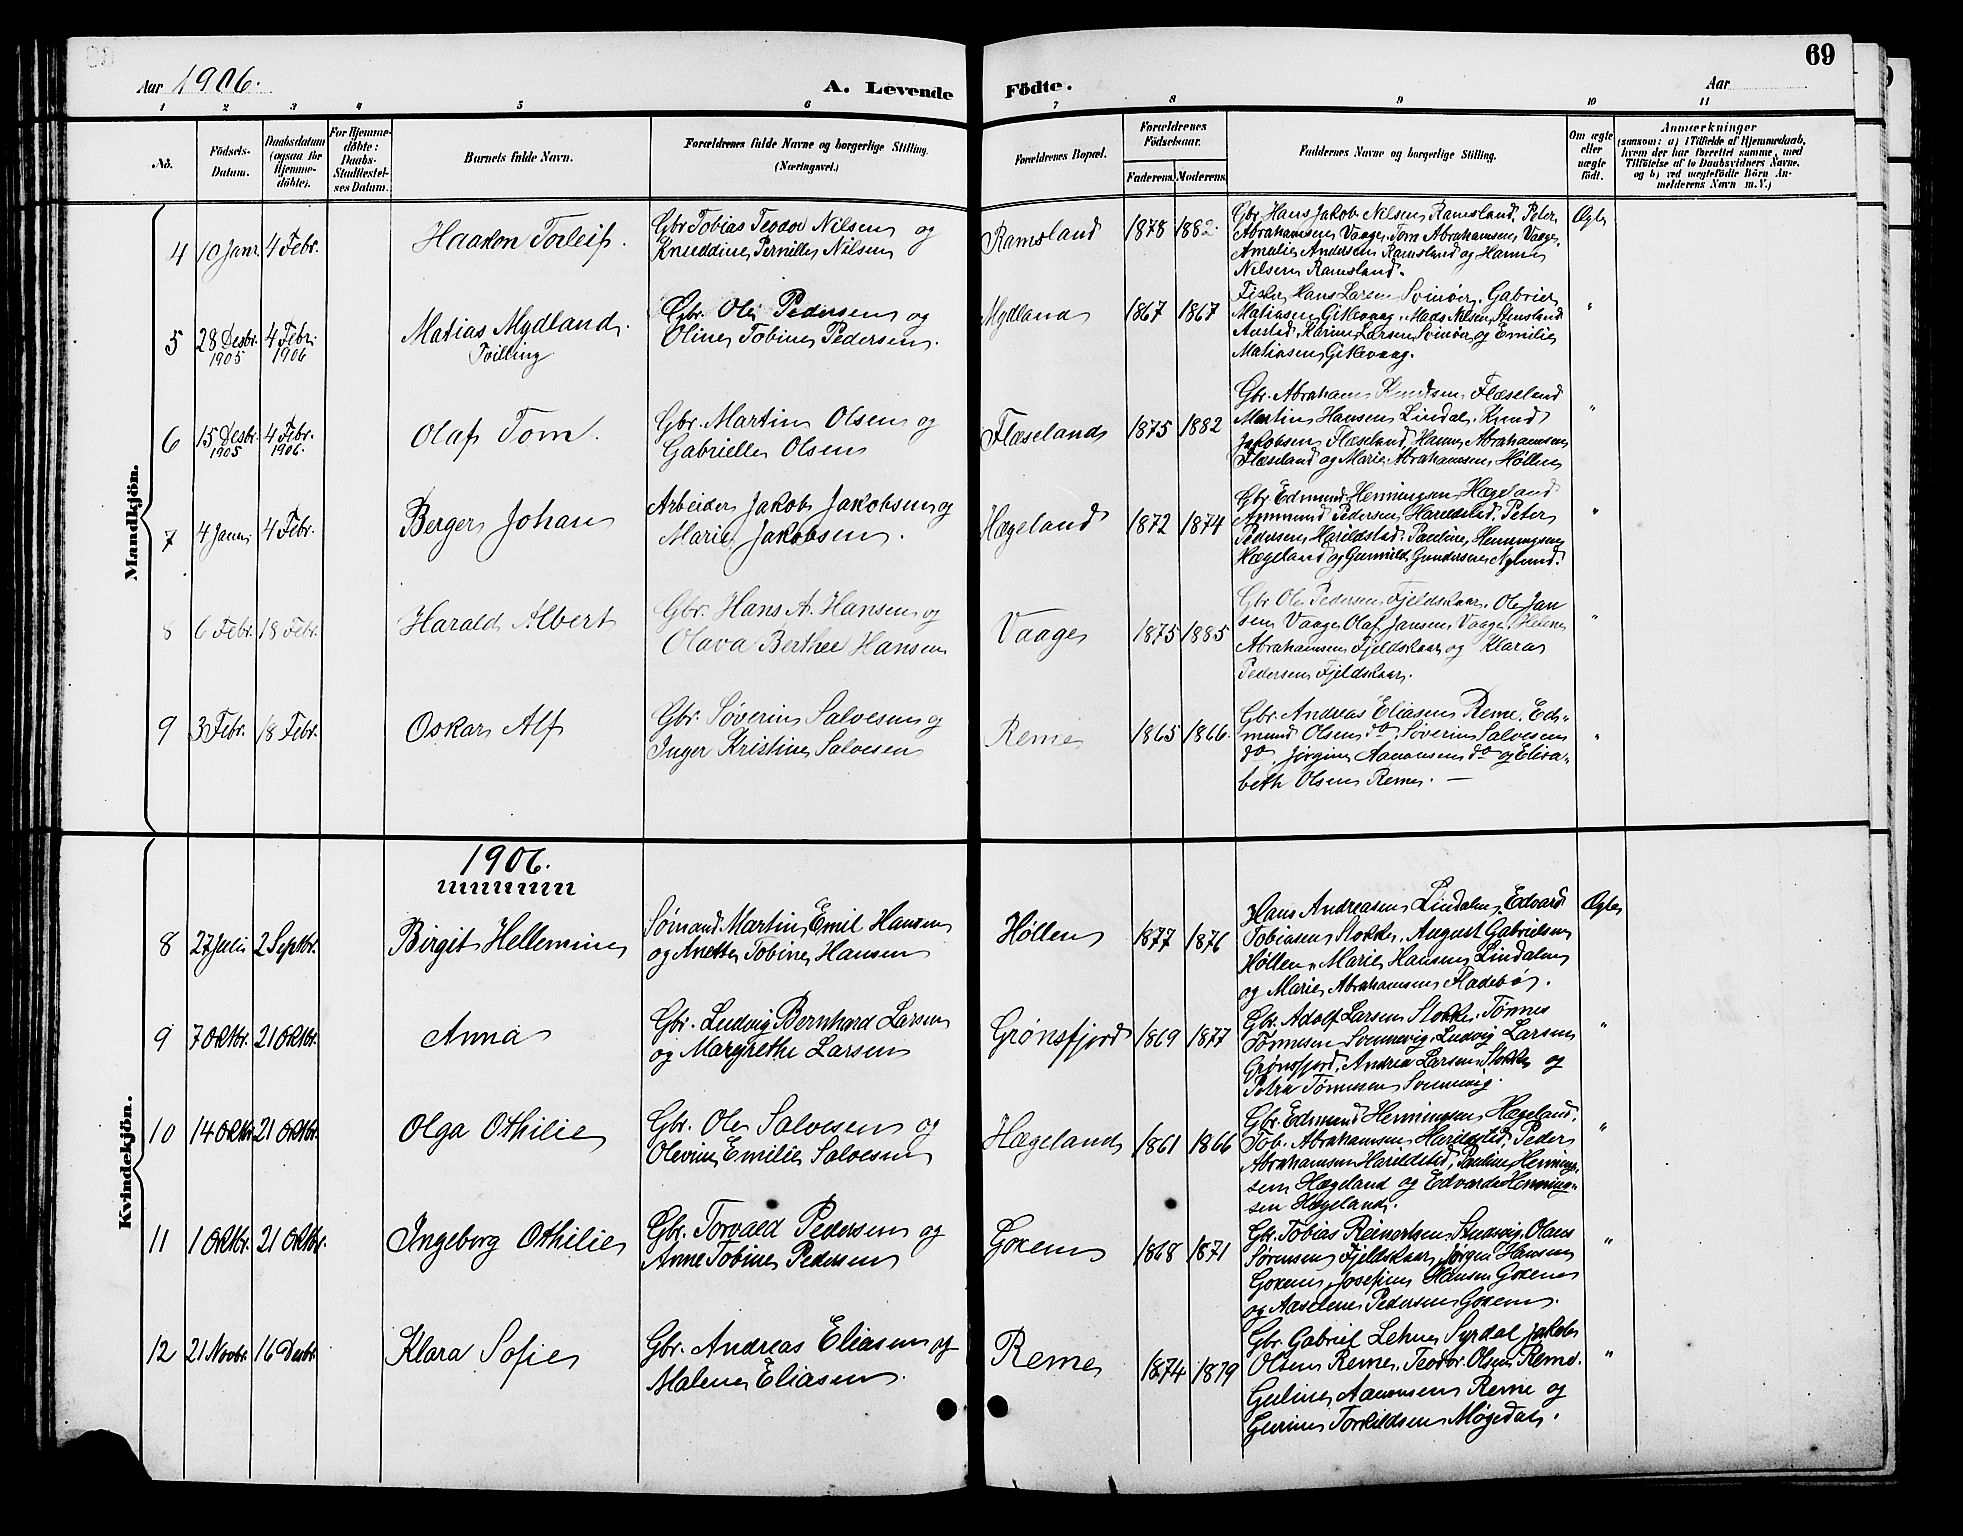 69
Aar 1906.
A. Levende Födte.
Aar
1 2 3 4 5 6 7 8 9 10 11
No.
Födsels-Datum.
Daabsdatum (ogsaa for Hjemmedöbte).
For Hjemmedöbte: Daabs-Stadfæstelses Datum.
Barnets fulde Navn.
Forældrenes fulde Navne og borgerlige Stilling. (Næringsvei.)
Forældrenes Bopæl.
Forældrenes Födselsaar.
Faderens. Moderens.
Faddernes Navne og borgerlige Stilling.
Om ægte eller uægte födt.
Anmærkninger
(saasom: a) i Tilfælde af Hjemmedaab, hvem der har forrettet samme, med Tilföielse af to Daabsvidners Navne, og b) ved uægtefödte Börn Anmelderens Navn m. V.)
Mandkjön.
4 10 Janr. 4 Febr. Haakon Torleif. Gbr Tobias Teodor Nilsen og
Knuddine Pernille Nilsen
Ramsland 1878 1882. Gbr. Hans Jakob Nilsen Ramsland, Peter
Abrahamsen Vaage, Tom Abrahamsen Vaage,
Amalie Andersen Ramsland og Hanne
Nilsen Ramsland.
Ægte
5 28 Desbr. 1905 4 Febr. 1906 Matias Mydland.
Tvilling
Gbr. Ole Pedersen og
Oline Tobine Pedersen.
Mydland 1867 1867 Fisker Hans Larsen Svinør, Gabriel
Matiasen Gitlevaag, Mads Nilsen Stensland
Austad, Karine Larsen Svinør og Emilie
Matiasen Gitlevaag.
"
6 15 Desbr. 1905 4 Febr. 1906. Olaf Tom. Gbr. Martin Olsen og
Gabrielle Olsen
Flæseland 1875 1882 Gbr. Abraham Knudsen Flæseland
Martin Hansen Lindal, Knud
Jakobsen Flæseland, Hanne Abrahamsen
Flæseland og Marie Abrahamsen Høllen
"
7 4 Janr. 4 Febr. Berger Johan Arbeider Jakob Jakobsen og
Marie Jakobsen.
Hægeland 1872 1874 Gbr. Edmund Henningsen Hægeland
Ammund Pedersen Harildstad, Peter
Pedersen Harildstad, Pauline Henningsen
Hægeland og Gunvild Gundersen
"
8 6 Febr. 18 Febr. Harald Albert Gbr. Hans A. Hansen og
Olava Berthee Hansen
Vaage 1875 1885 Gbr Ole Pedersen Fjeldskaar, Ole Jan
sen Vaage, Olaf Jansen Vaage, Helene
Abrahamsen Fjeldskaar og Klara
Pedersen Fjeldskaar.
"
9 3 Febr. 18 Febr. Oskar Alf Gbr. Søverin Salvesen og
Inger Kristine Salvesen
Reme 1865 1866. Gbr. Andreas Eliasen Reme, Ed-
mund Olsen do, Søverin Salvesen
do, Jørgine Aanonsen do og Elisa-
beth Olsen Reme. —
"
Kvindekjön.
1906.
8 27 Juli 2 Septbr. Birgit Hellemine Sømand Martin Emil Hansen
og Anette Tobine Hansen
Høllen 1877 1876 Hans Andreasen Lindalen, Edvard
Tobiasen Stokke, August Gabrielsen
Høllen, Marie Hansen Lindalen
og Marie Abrahamsen Fladebø.
Ægte
9 7 Oktbr. 21 Oktbr. Anna Gbr. Ludvig Bernhard Larsen
og Margrethe Larsen
Grønsfjord 1869 1877 Gbr. Adolf Larsen Stokke, Tønnes
Tønnesen Sonnevig, Ludvig Larsen
Grønsfjord, Andrea Larsen Stokke og
Petra Tønnesen Sonnevig.
"
10 14 Oktbr. 21 Oktbr. Olga Othilie Gbr. Ole Salvesen og
Olevine Emilie Salvesen
Hægeland 1861 1866 Gbr. Edmund Henningsen Hægeland,
Tob. Abrahamsen Harildstad, Peder
Abrahamsen Harildstad, Pauline Hennings-
sen Hægeland og Edvarda Henning-
sen Hægeland.
"
11 1 Oktbr. 21 Oktbr. Ingeborg Othilie Gbr. Torvald Pedersen og
Anne Tobine Pedersen
Goxem 1868 1871 Gbr. Tobias Reinertsen Studsvig, Olaus
Sørensen Fjeldskaar, Jørgen Hansen
Goxem, Josefine Hansen Goxem
og Aaselene Pedersen Goxem.
"
12 21 Novbr. 16 Desbr. Klara Sofie Gbr. Andreas Eliasen og
Malene Eliasen.
Reme 1874 1879 Gbr. Gabriel Lehne Syrdal, Jakob
Olsen Reme, Teodor Olsen Reme.
Guline Aanonsen Reme og
Gurine Torkildsen Møgedal.
"